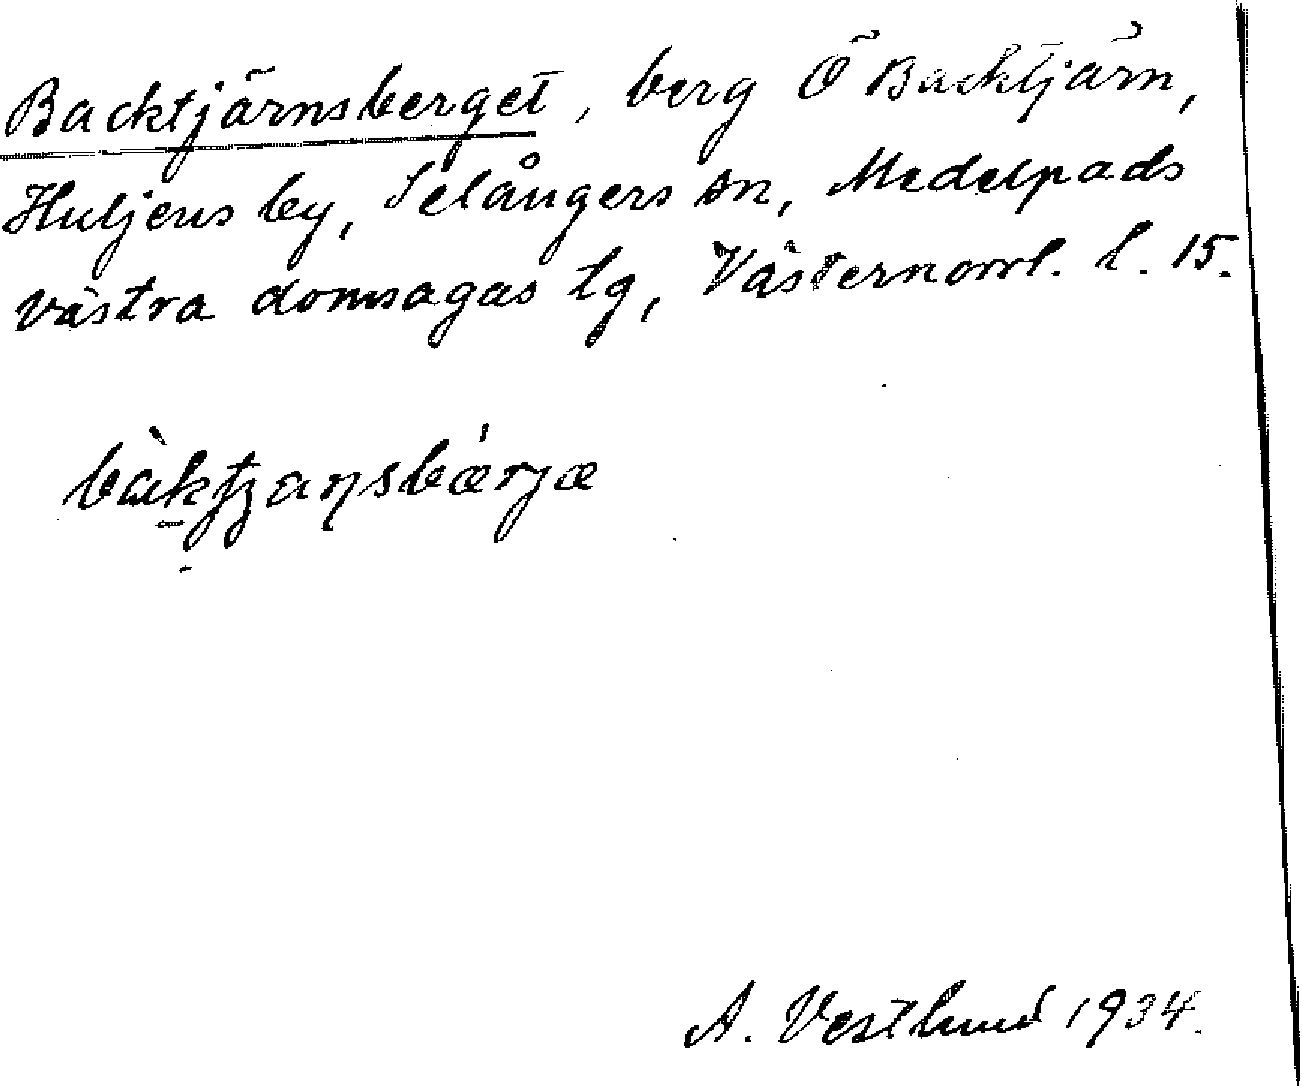 Backtjärnsberget, berg Ö Backtjärn,
Huljens by, Selångers sn, Medelpads
västra domsagas tg, Västernorrl. l. 15.
A. Vestlund 1934.